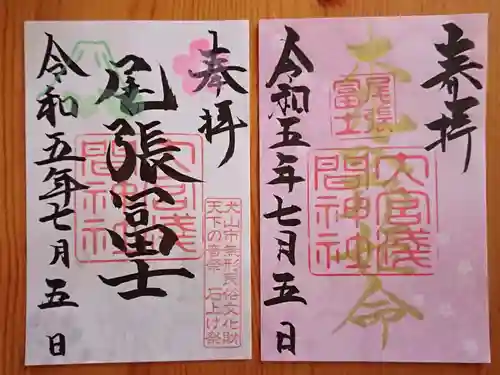 奉拝
尾張冨士
大宮浅
間神社
令和五年七月五日
犬山市無形民俗文化財
天下の奇祭 石上げ祭
奉拝
尾張
富士
大宮浅
間神社
命
令和五年七月五日